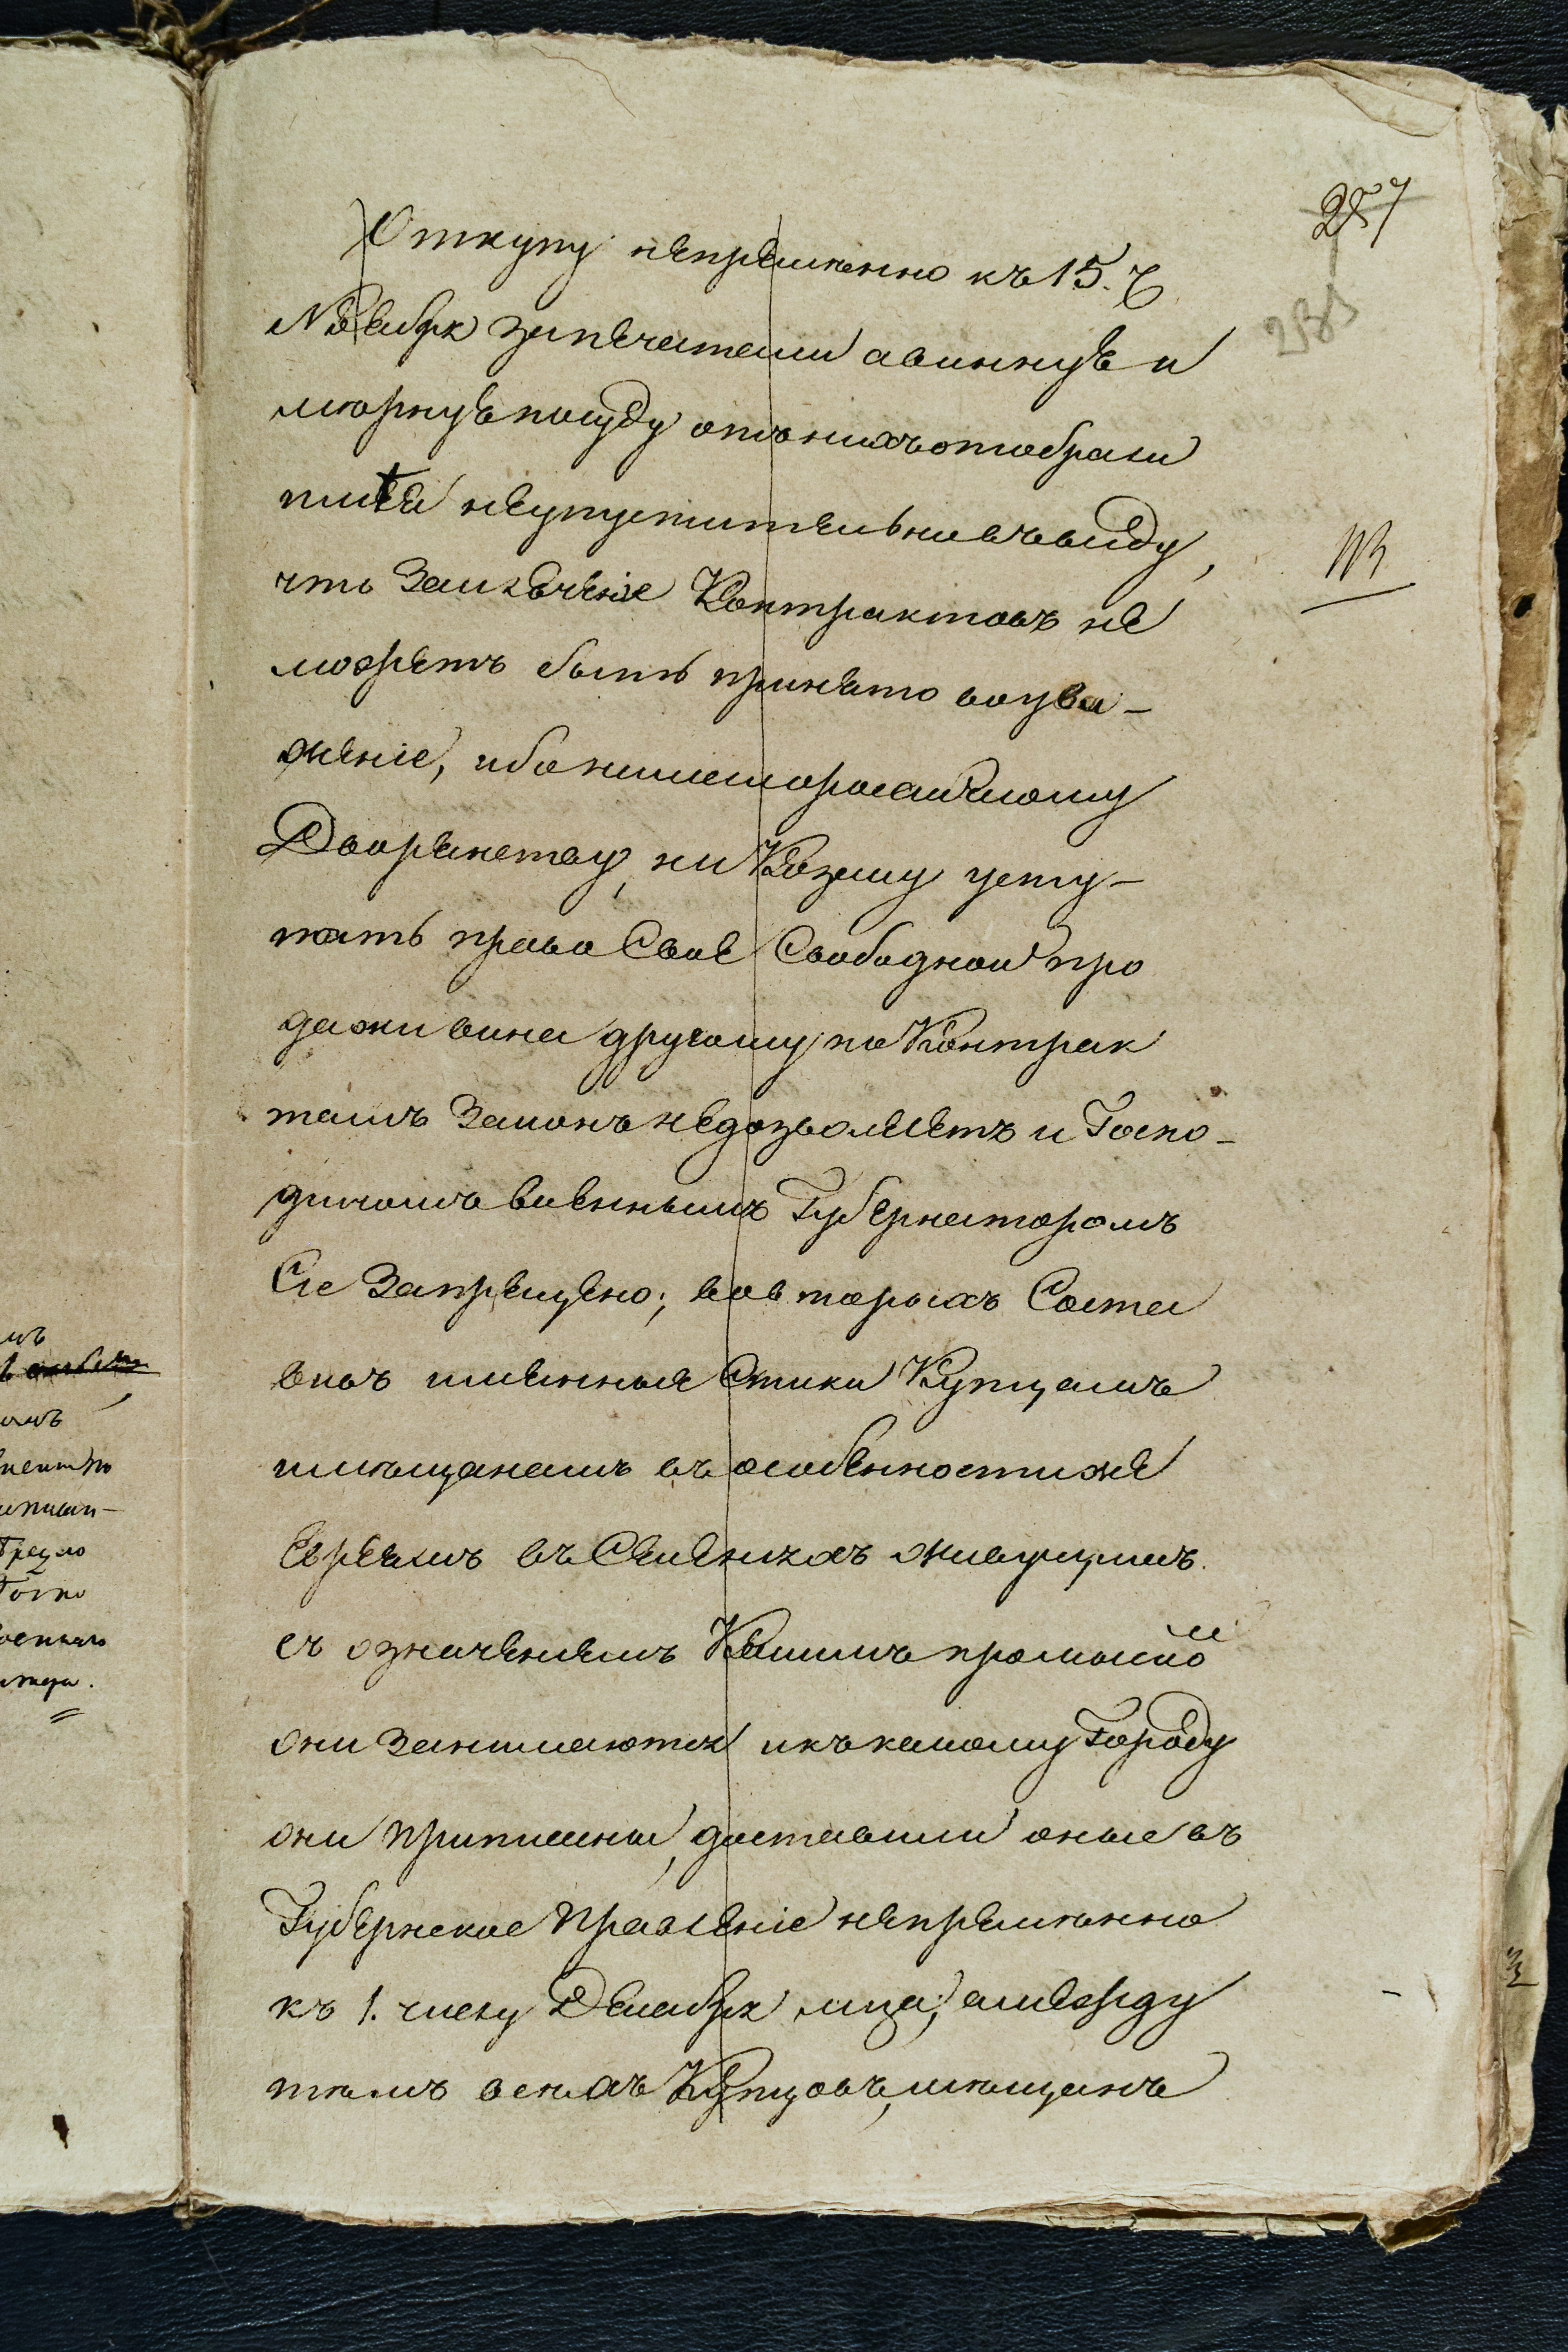 257
Откупу непремѣнно къ 15. ч.
Ноября запечатали а винную и
мѣрную посуду отъ нихъ отобрали
имѣя неупустительно въ виду,
что Заключеніе Контрактовъ не
можетъ быть принято во ува-
женіе, ибо ни помѣстному
Дворянству, ни Казнѣ усту-
пать право Свое Свободной про
дажи вина другому по Контрак
тамъ Законъ недозволяетъ и Госпо-
диномъ военнымъ Губернаторомъ
Сіе Запрещено; вовторыхъ Соста
вивъ имянныя Списки Купцамъ
и мѣщанамъ въ особенности же
Евреямъ въ Селеніяхъ живущимъ
съ означеніемъ Какимъ промысло
они Занимаются и къ какому Городу
они приписаны, доставили оные въ
Губернское Правленіе непремѣнно
къ 1. числу Декабря мца; а между
тѣмъ всѣхъ Купцовъ, мѣщанъ